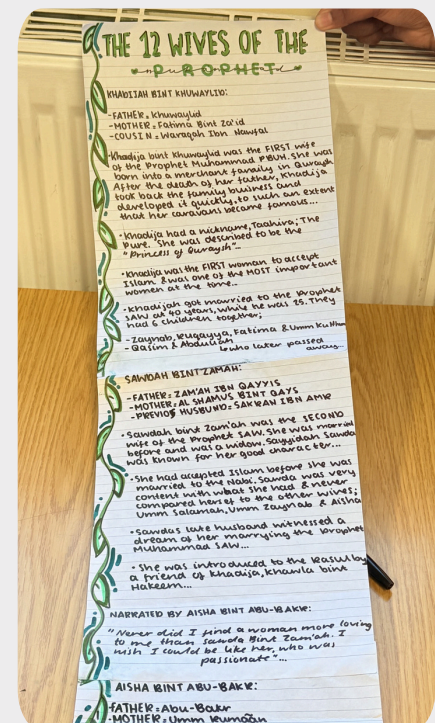 THE 12 WIVES OF THE
PROPHET
KHADIJAH BINT KHUWAYLID:
-FATHER = Khuwaylid
-MOTHER = Fatima Bint Za'id
-COUSIN = Waraqah Ibn Nawfal
•Khadija bint Khuwaylid was the FIRST wife
of the Prophet Muhammad PBUH. She was
born into a merchant family in Quraysh
After the death of her father, Khadija
took back the family business and
developed it quickly, to such an extent
that her caravans became famous...
•Khadija had a nickname, Taahira; The
Pure. She was described to be the
"Princess of Quraysh"...
•Khadija was the FIRST woman to accept
Islam & was one of the MOST important
women at the time..
•Khadijah got married to the Prophet
SAW at 40 years, while he was 25. They
had 6 children together;
-Zaynab, Ruqayya, Fatima & Umm Kulthum
-Qasim & Abdullah
who later passed
away...
SAWDAH BINT ZAMAH:
-FATHER = ZAM'AH IBN QAYYIS
-MOTHER = AL SHAMUS BINT QAYS
-PREVIOS HUSBUND = SAKRAN IBN AMR
•Sawdah bint Zam'ah was the SECOND
wife of the Prophet SAW. She was married
before and was a widow. Sayyidah Sawda
was known for her good character...
•She had accepted Islam before she was
married to the Nabi. Sawda was very
content with what she had & never
compared herself to the other wives;
Umm Salamah, Umm Zaynab & Aisha
•Sawdas late husband witnessed a
dream of her marrying the Prophet
Muhammad SAW...
•She was introduced to the Rasul by
a friend of Khadija, Khawla bint
Hakeem...
NARRATED BY AISHA BINT ABU-BAKR:
"Never did I find a woman more loving
to me than Sawda Bint Zam'ah. I
wish I could be like her, who was
passionate"...
AISHA BINT ABU-BAKR:
FATHER = Abu-Bakr
-MOTHER = Umm Rumaan